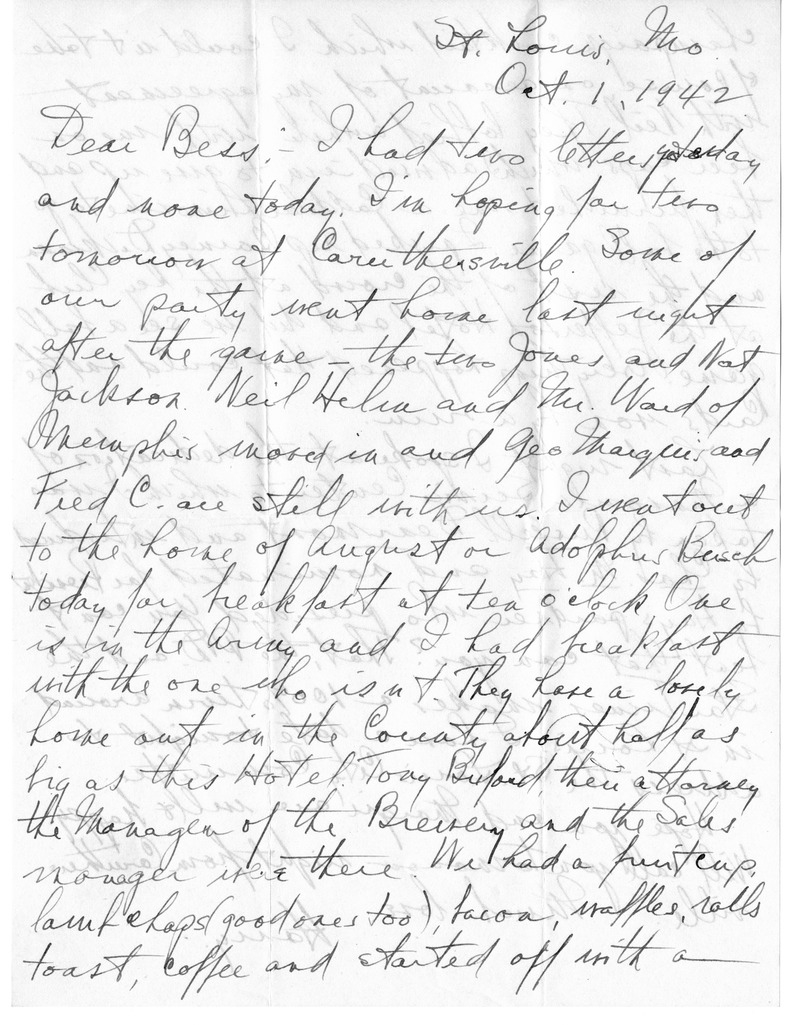 St. Louis, Mo.
Oct. 1, 1942
Dear Bess:- I had two letters yesterday
and none today. I'm hoping for two
tomorrow at Caruthersville. Some of
our party went home last night
after the game - the two Jones and Nat
Jackson. Neil Helm and Mr. Ward of
Memphis moved in and Geo Marquis and
Fred C. are still with us. I went out
to the home of August or Adolphus Busch
today for breakfast at ten o'clock One
is in the Army and I had breakfast
with the one who isn't. They have a lovely
home out in the County about half as
big as this Hotel. Tony Buford, their attorney
the Manager of the Brewery and the Sales
manager were there. We had a fruit cup,
lamb chops (good ones too), bacon, waffles, rolls
toast, coffee and started off with a